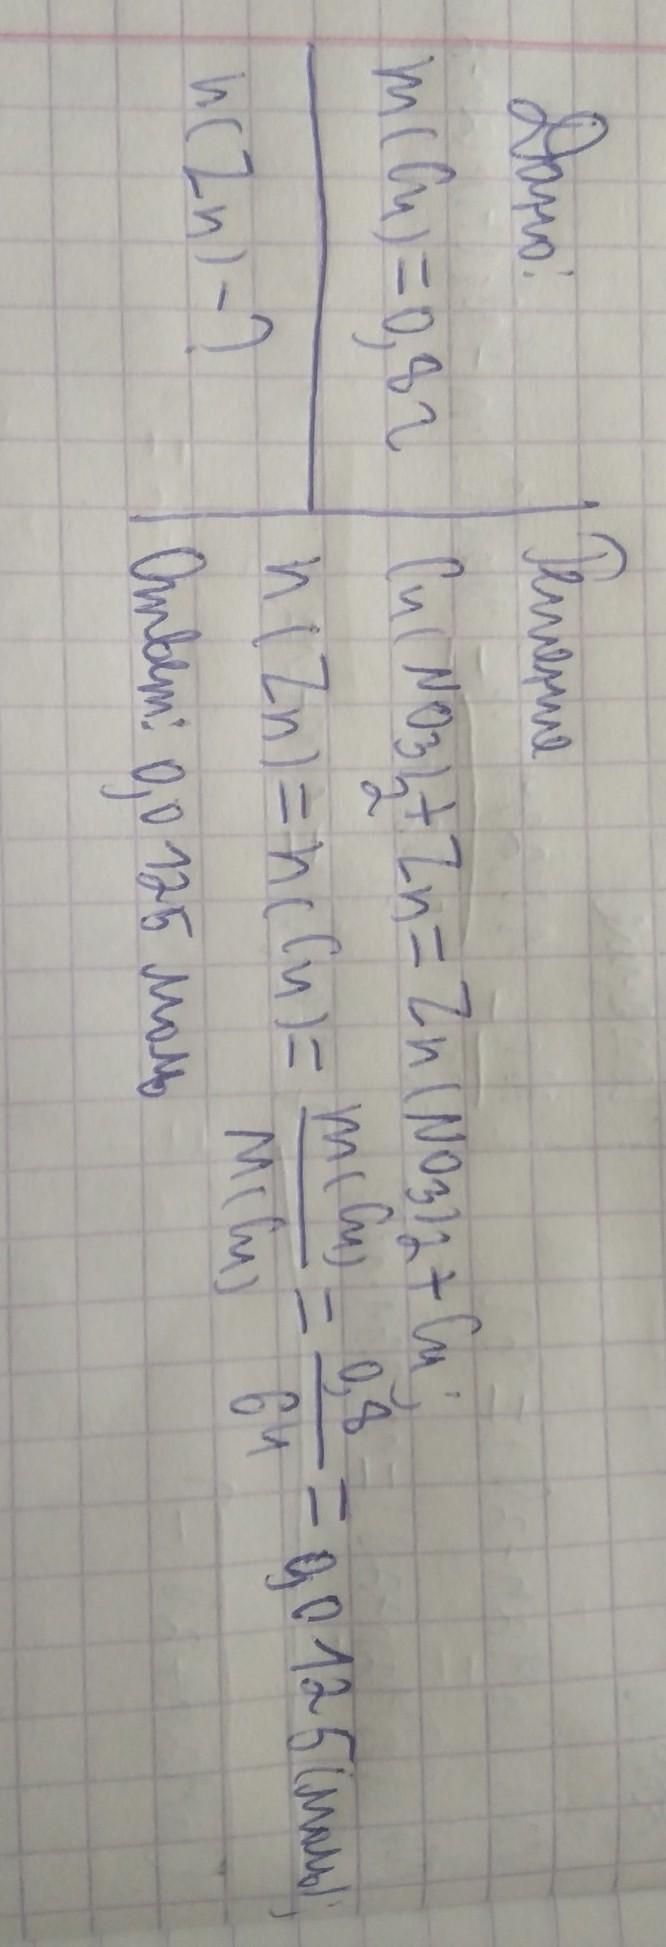 Дано:
m(Cu)=0,8г
n(Zn)-?
Решение
Cu(NO3)2+Zn=Zn(NO3)2+Cu;
n(Zn)=n(Cu)=m(Cu)/M(Cu)=0,8/64=0,0125(моль);
Ответ: 0,0125 моль